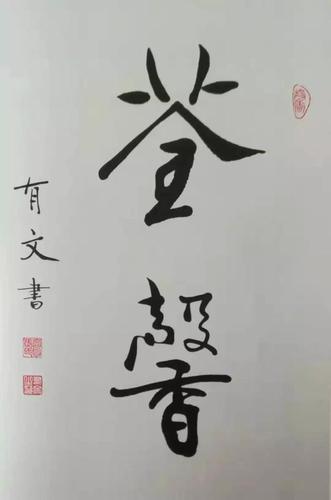 荃馨
有文書